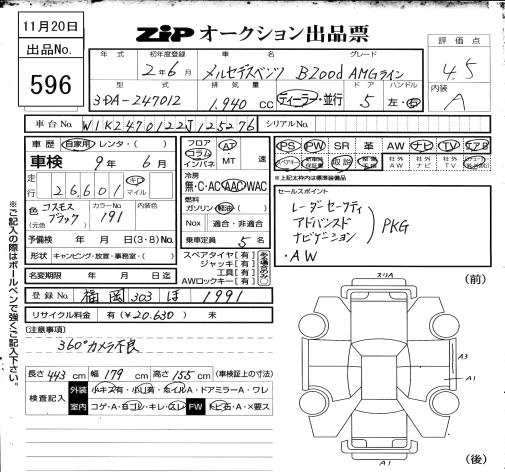 11月20日
ZIP オークション出品票
出品No.
596
年 式 初年度登録 車 名 グレード
2年6月 メルセデスベンツ B200d AMGライン
評価点
4.5
内装
A
型 式 排 気 量 ド ア ハンドル
3DA-247012 1,940 cc ディーラー・並行 5 左・右
車台No. W1K2470122J125276 シリアルNo.
車 歴 自家用・レンタ・( )
車検 9年 6月
走行 26,601 キロ マイル
色 コスモスブラック (元色) カラーNo. 191 内装色
予備検 年 月 日(3・8)No.
形状 キャンピング・放宣・事務室・( )
名変期限 年 月 日迄
フロア コラム インパネ AT MT 速
冷房
無・C・AC AAC WAC
燃料
ガソリン 軽油 ( )
Nox 適合・非適合
乗車定員 5 名
スペアタイヤ【有】
ジャッキ【有】
工具【有】
AWロックキー【有】
PS PW SR 革 AW ナビ TV エアB
スペアキー 取説 社外AW 社外ナビ 社外TV
*上記太枠内は標準装備品
セールスポイント
レーダーセーフティ
アドバンスド
ナビゲーション
PKG
・AW
登 録 No. 福岡 303 ほ 1991
リサイクル料金 有(¥20,630) 未
[注意事項]
360°カメラ不良
長さ 443 cm 幅 179 cm 高さ 155 cm (車検証上の寸法)
検査記入 外装 小キズ有・小凹有・ホイルA・ドアミラーA・ワレ
室内 コゲ・A・ヨゴレ・キレ・スレ FW トビ石・A・×要ス
※ご記入の際はボールペンで強くご記入下さい。
スリA
(前)
A3
A1
A1
(後)